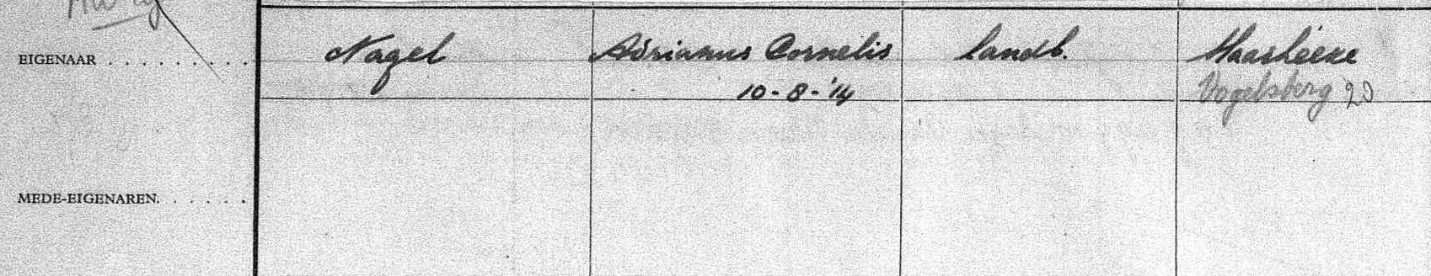 EIGENAAR . . . . . . . . . Nagel Adrianus Cornelis landb. Maasheeze
10-8-'14 Vogelsberg 20
MEDE-EIGENAREN. . . . . .